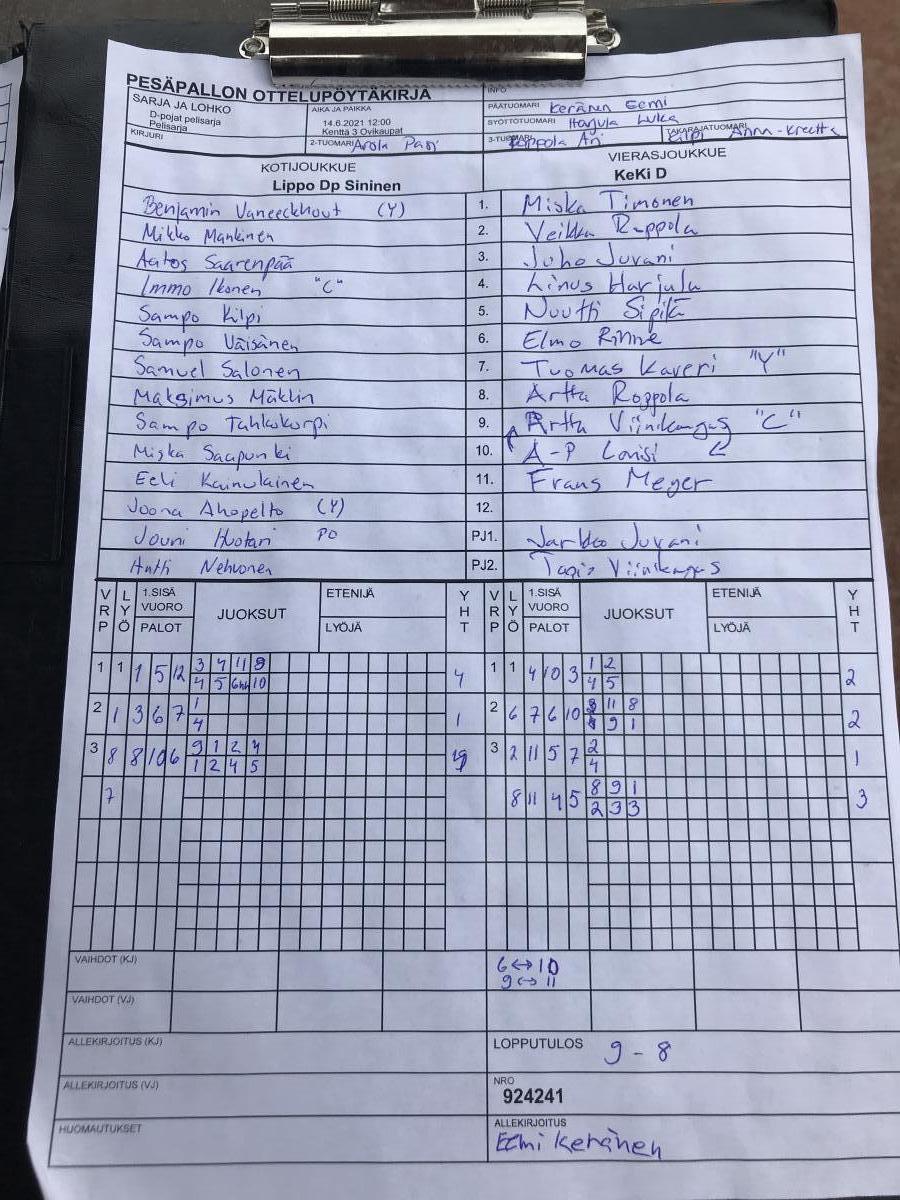 PESÄPALLON OTTELUPÖYTÄKIRJA
SARJA JA LOHKO
D-pojat pelisarja
Pelisarja
KIRJURI
AIKA JA PAIKKA
14.6.2021 12:00
Kenttä 3 Ovikaupat
2-TUOMARI Arola Pasi
INFO
PÄÄTUOMARI Keränen Eemi
SYÖTTÖTUOMARI Harjula Luka
3-TUOMARI Roppola Ari
TAKARAJATUOMARI Kilpi Anna-Kreetta
KOTIJOUKKUE
Lippo Dp Sininen
VIERASJOUKKUE
KeKi D
Benjamin Vaneeckhout (Y) 1. Miska Timonen
Mikko Mankinen 2. Veikka Roppola
Aatos Saarenpää 3. Juho Juvani
Immo Ikonen "C" 4. Linus Harjula
Sampo Kilpi 5. Nuutti Sipilä
Sampo Väisänen 6. Elmo Rinne
Samuel Salonen 7. Tuomas Kaveri "Y"
Maksimus Mäklin 8. Artta Roppola
Sampo Tahkokorpi 9. Artta Viinikangas "C"
Miska Saapunki 10. A-P Lonisi
Eeli Kainulainen 11. Frans Meyer
Joona Ahopelto (Y) 12.
Jouni Huotari PO PJ1. Jarkko Juvani
Antti Nehvonen PJ2. Viinikangas
VRP LYÖ 1.SISÄ VUORO PALOT JUOKSUT ETENIJÄ LYÖJÄ YHT VRP LYÖ 1.SISÄ VUORO PALOT JUOKSUT ETENIJÄ LYÖJÄ YHT
1 1 1 5 12 3 4 11 9 4 1 1 4 10 3 1 2 2
4 5 10 4 5
2 1 3 6 7 1 1 2 6 7 6 10 11 8 2
4 9 1
3 8 8 10 6 9 1 2 4 3 2 11 5 7 2 1
1 2 4 5 4
7 8 11 4 5 8 9 1 3
2 3 3
VAIHDOT (KJ) 6↔10
9↔11
VAIHDOT (VJ)
ALLEKIRJOITUS (KJ) LOPPUTULOS 9 - 8
ALLEKIRJOITUS (VJ) NRO
924241
HUOMAUTUKSET ALLEKIRJOITUS
Eemi Keränen